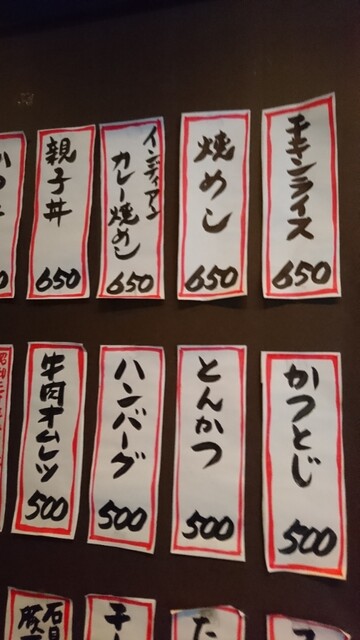 チキンライス
650
焼めし
650
インディアン
カレー焼めし
650
親子丼
650
かつとじ
500
とんかつ
500
ハンバーグ
500
牛肉オムレツ
500